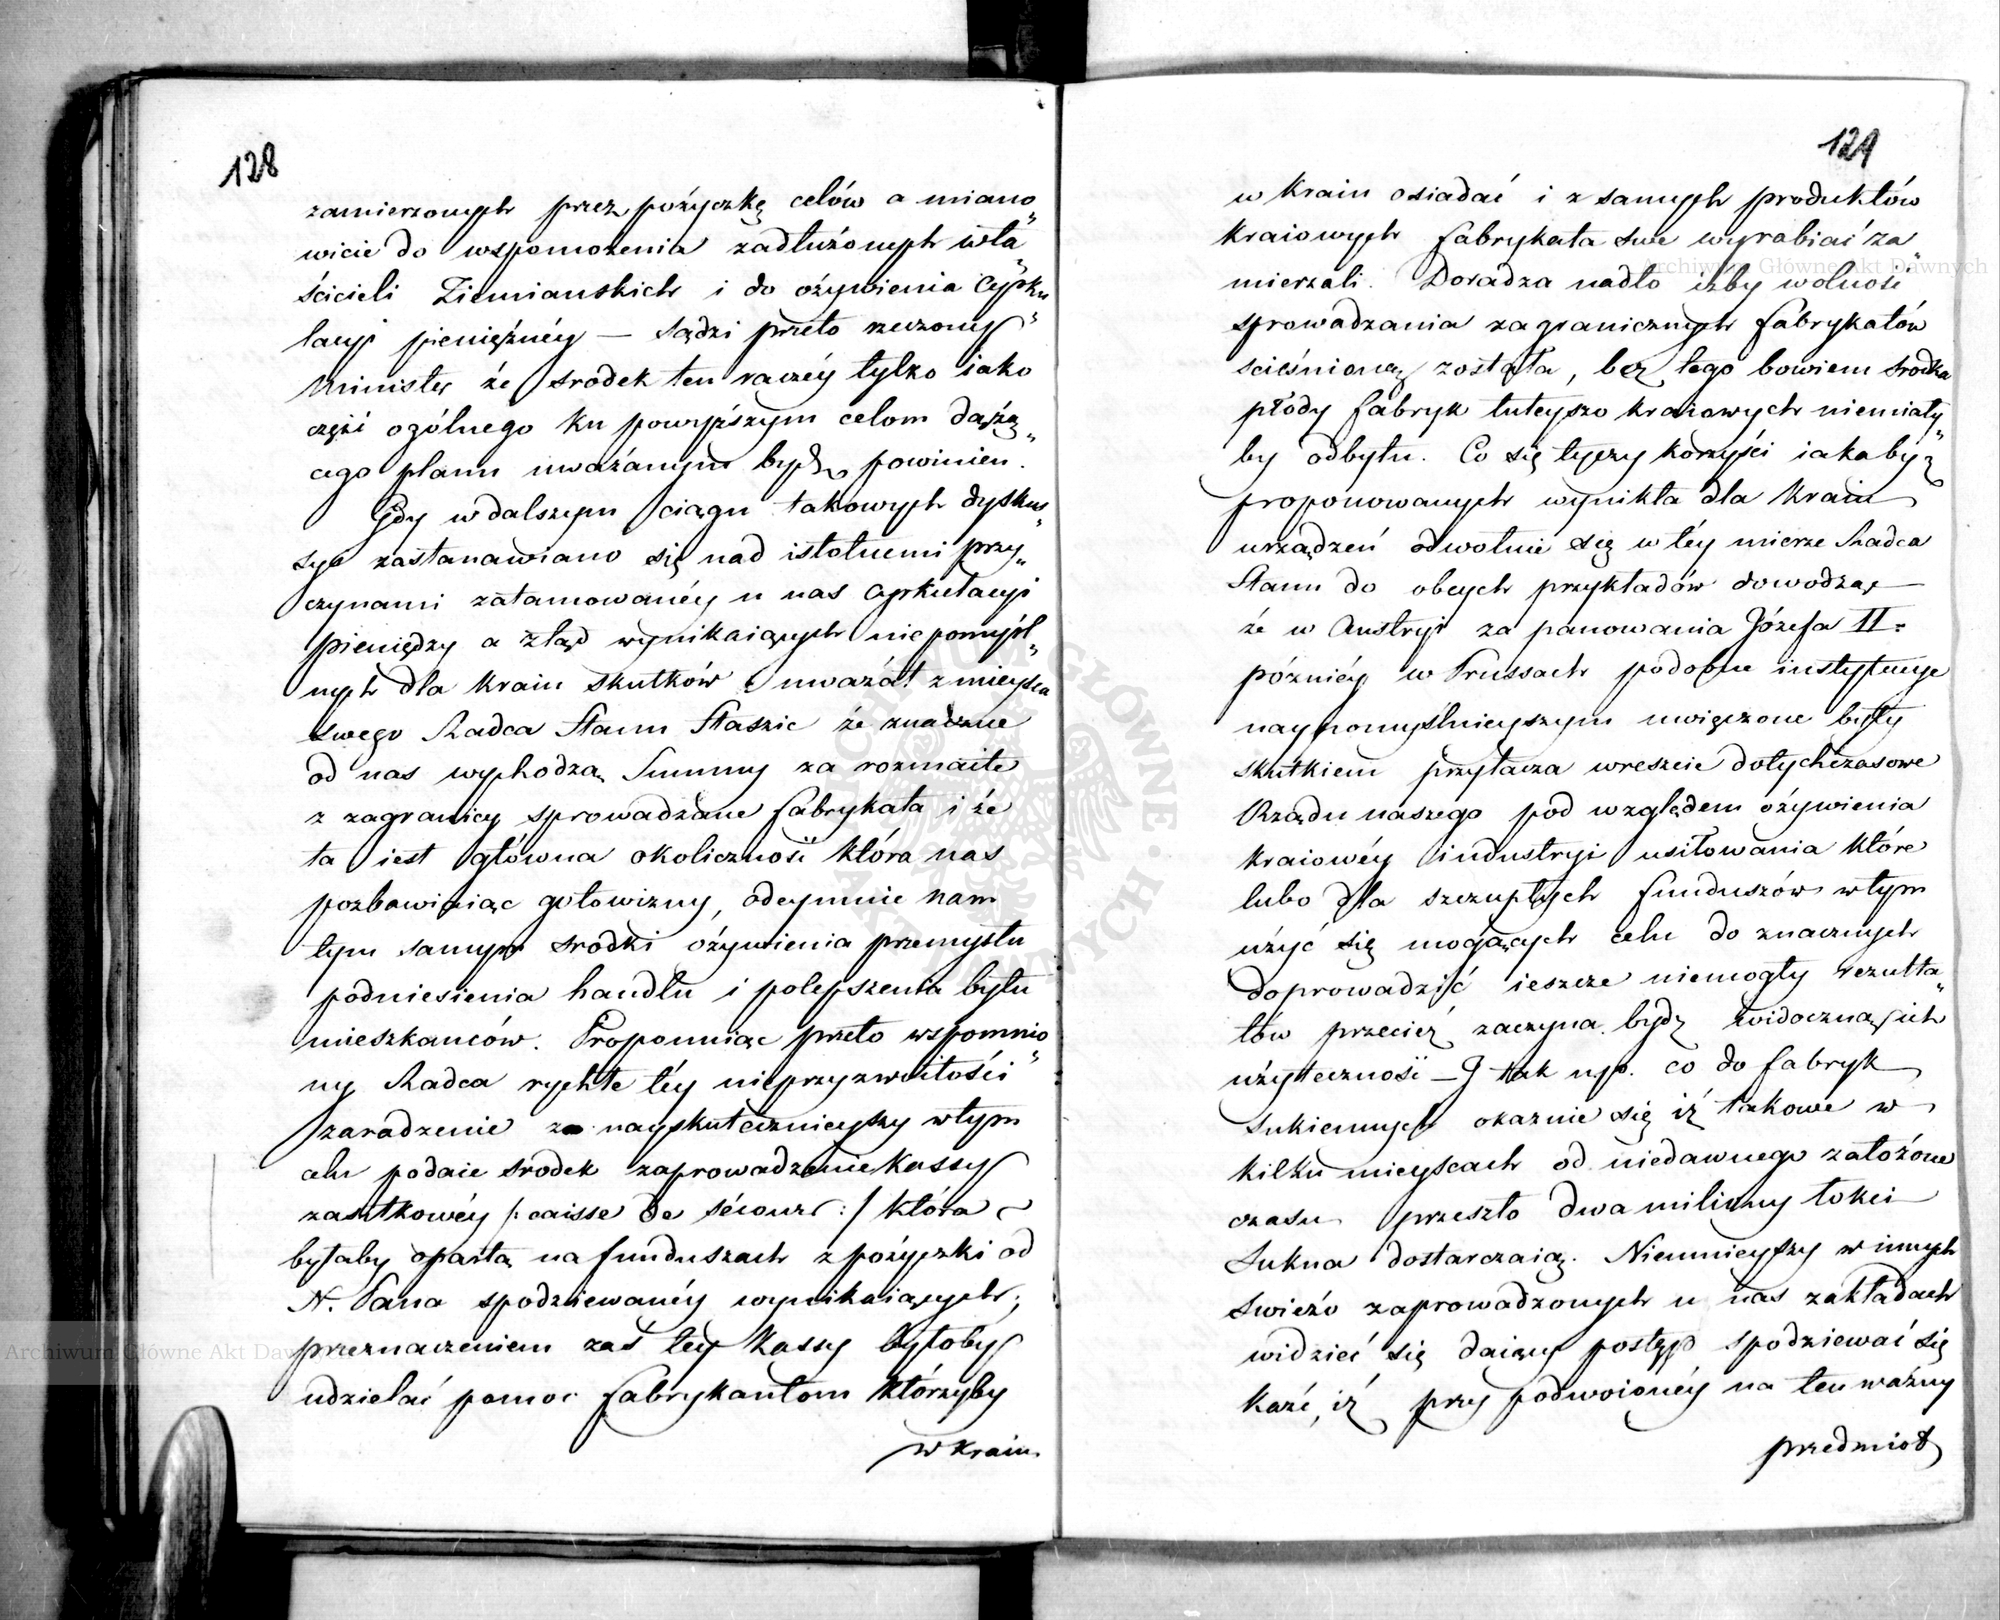 128
zamierzonych przez pożyczkę celów a miano„
wicie do wspomożenia zadłużonych wła„
ścicieli Ziemianskich i do ożywienia Cyrku„
lacyi pieniężnéy — Sądzi przeto rzeczony
Minister że srodek ten raczéy tylko iako
część ogólnego ku powyższym celom dążą„
cego planu uważanym bydź powinien.
Gdy w dalszym ciągu takowych dyskus„
syi zastanawiano się nad istotnemi przy„
czynami zatamowanéy u nas Cyrkulacyi
pieniędzy a ztąd wynikaiących niepomyśl„
nych dla kraiu skutków uważał z mieysca
swego Radca Stanu Staszic że znaczne
od nas wychodzą Summy za rozmaite
z zagranicy sprowadzane fabrykata i że
ta iest główna okoliczność która nas
pozbawiaiąc gotowizny, odeymuie nam
tym samym srodki ożywienia przemysłu
podniesienia handlu i polepszenia bytu
mieszkanców. Proponuiąc przeto wspomnio„
ny Radca rychłe téy nieprzyzwoitości
zaradzenie za nayskutecznieyszy w tym
celu podaie srodek zaprowadzenie Kassy
zasiłkowéy /: caisse de sécours :/ która
byłaby opartą na funduszach z pożyczki od
N. Pana spodziewanéy wynikaiących;
przeznaczeniem zaś tey Kassy byłoby
udzielać pomoc fabrykantom którzyby
w kraiu
129
w kraiu osiadać i z samych produktów
kraiowych fabrykata swe wyrabiać za„
mierzali. Doradza nadto iżby wolność
sprowadzania zagranicznych fabrykatów
scieśnioną została, bez tego bowiem srodka
płody fabryk tuteyszo kraiowych niemiały„
by odbytu. Co się tyczy korzyści iakaby z
proponowanych wynikła dla kraiu
urządzeń odwołuie się w téy mierze Radca
Stanu do obcych przykładów dowodząc
że w Austryi za panowania Józefa II.
pózniéy w Prussach podobne instytucye
naypomyślnieyszym uwięczone były
skutkiem przytacza wreszcie dotychczasowe
Rządu naszego pod względem ożywienia
kraiowéy industryi usiłowania które
lubo dla szczupłych funduszów w tym
użyć się mogących celu do znacznych
doprowadzić ieszcze niemogły rezulta„
tów przecież zaczyna bydź widoczną ich
użyteczność — J tak np. co do fabryk
Sukiennych okazuie się iż takowe w
kilku mieyscach od niedawnego założone
czasu przeszło dwa miliony łokci
Sukna dostarczaią. Niemnieyszy w innych
swieżo zaprowadzonych u nas zakładach
widzieć się daiący postęp spodziewać się
każe, iż przy podwoionéy na ten ważny
przedmiot